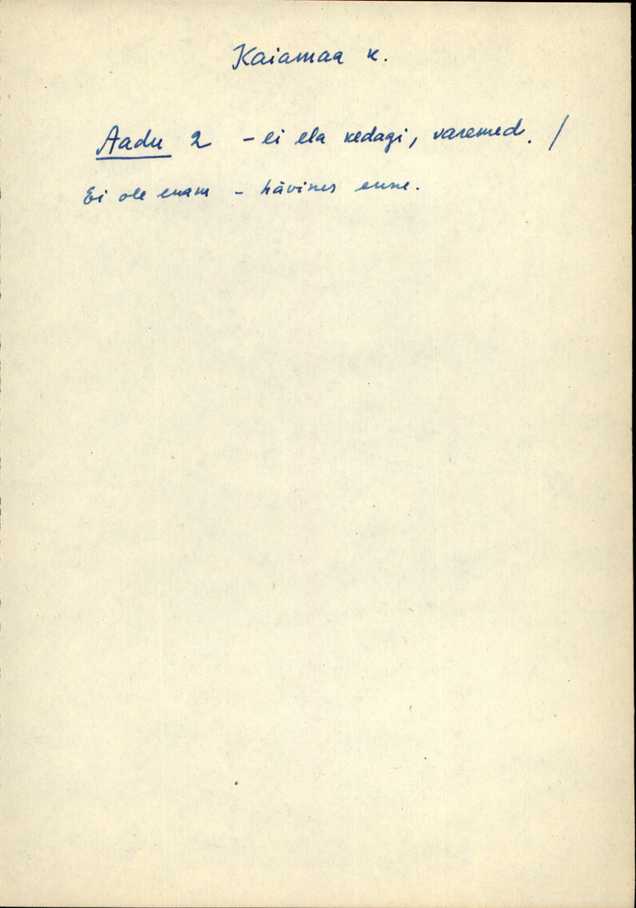 Kaiamaa k.
Aadu 2 - ei ela kedagi, varemed. /
Ei ole enam - hävines enne.